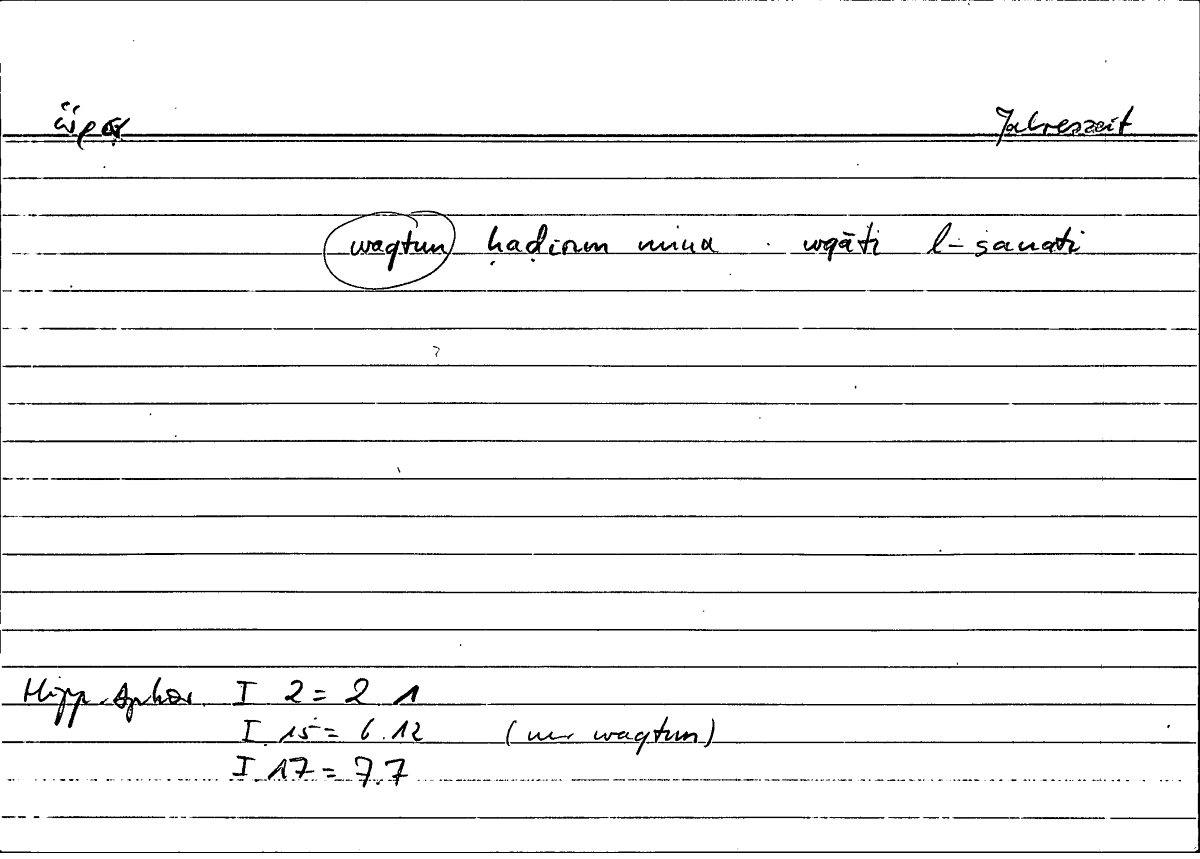 ὥρα Jahreszeit
waqtun ḥaḍirun mina wqāti l-sanati
Hipp. Aphor. I 2 = 2 1
I 15 = 6.12 (nur waqtun)
I 17 = 7.7